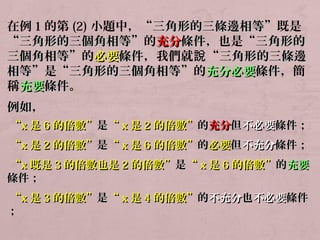 在例 1 的第 (2) 小題中，“三角形的三條邊相等”既是
“三角形的三個角相等”的充分條件，也是“三角形的
三個角相等”的必要條件，我們就說“三角形的三條邊
相等”是“三角形的三個角相等”的充分必要條件，簡
稱充要條件。
例如，
“x 是 6 的倍數”是“ x 是 2 的倍數”的充分但不必要條件；
“x 是 2 的倍數”是“ x 是 6 的倍數”的必要但不充分條件；
“x 既是 3 的倍數也是 2 的倍數”是“ x 是 6 的倍數”的充要
條件；
“x 是 3 的倍數”是“ x 是 4 的倍數”的不充分也不必要條件
；